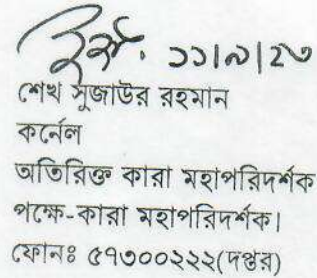 ১১/৯/২৩
শেখ সুজাউর রহমান
কর্নেল
অতিরিক্ত কারা মহাপরিদর্শক
পক্ষে-কারা মহাপরিদর্শক।
ফোনঃ ৫৭৩০০২২২(দপ্তর)